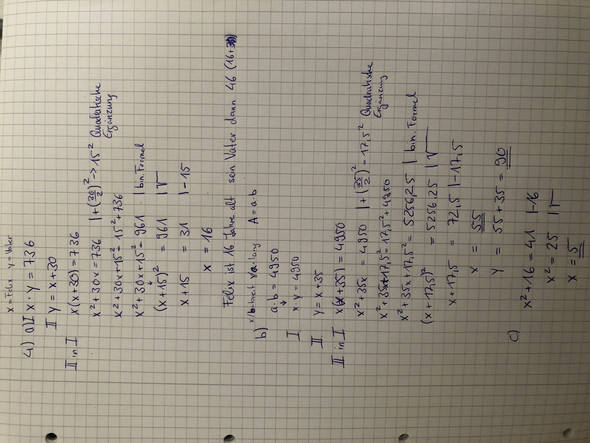 x = Felix y = Vater
4) a) I x · y = 736
II y = x + 30
II in I x(x+30) = 736
x² + 30x = 736 | + (30/2)² → 15² Quadratische Ergänzung
x² + 30x + 15² = 15² + 736
x² + 30x + 15² = 961 | bin. Formel
(x + 15)² = 961 | √
x + 15 = 31 | - 15
x = 16
Felix ist 16 Jahre alt sein Vater dann 46 (16+30)
b) A = a · b
a · b = 4950
I x · y = 4950
II y = x + 35
II in I x(x+35) = 4950
x² + 35x = 4950 | + (35/2)² = 17,5² Quadratische Ergänzung
x² + 35x + 17,5² = 17,5² + 4950
x² + 35x + 17,5² = 5256,25 | bin. Formel
(x + 17,5)² = 5256,25 | √
x + 17,5 = 72,5 | - 17,5
x = 55
y = 55 + 35 = 90
c) x² + 16 = 41 | - 16
x² = 25 | √
x = 5